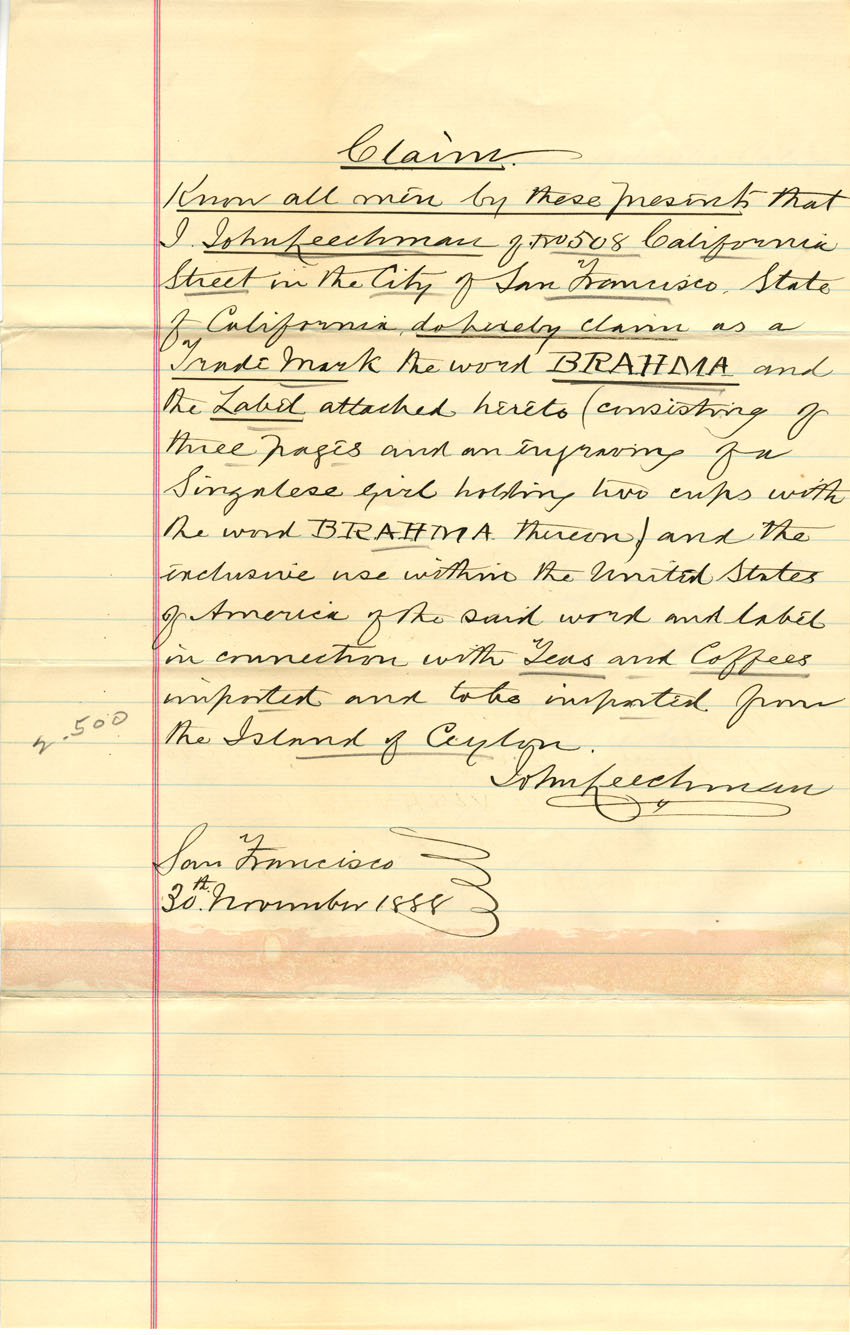 Claim.
Know all men by these presents that
I John Leechman of No 508 California
Street in the City of San Francisco, State
of California, do hereby claim as a
Trade Mark the word BRAHMA and
the Label attached hereto (consisting of
three pages and an engraving of a
Singalese girl holding two cups with
the word BRAHMA thereon) and the
exclusive use within the United States
of America of the said word and label
in connection with Teas and Coffees
imported and to be imported from
the Island of Ceylon.
2.500
John Leechman
San Francisco
30th. November 1888